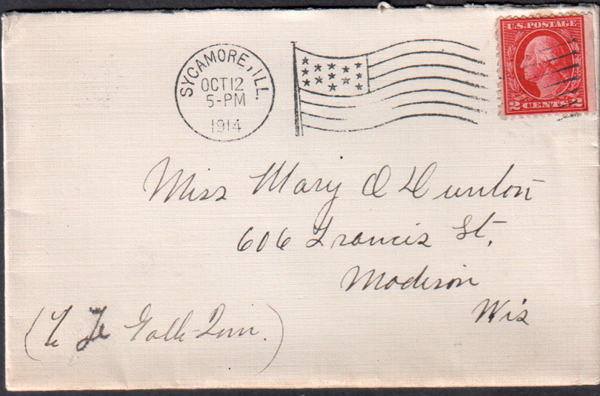 SYCAMORE, ILL.
OCT 12
5-PM
1914
U.S. POSTAGE
2 CENTS 2
Miss Mary O Dunton
606 Francis St.
Madison
Wis